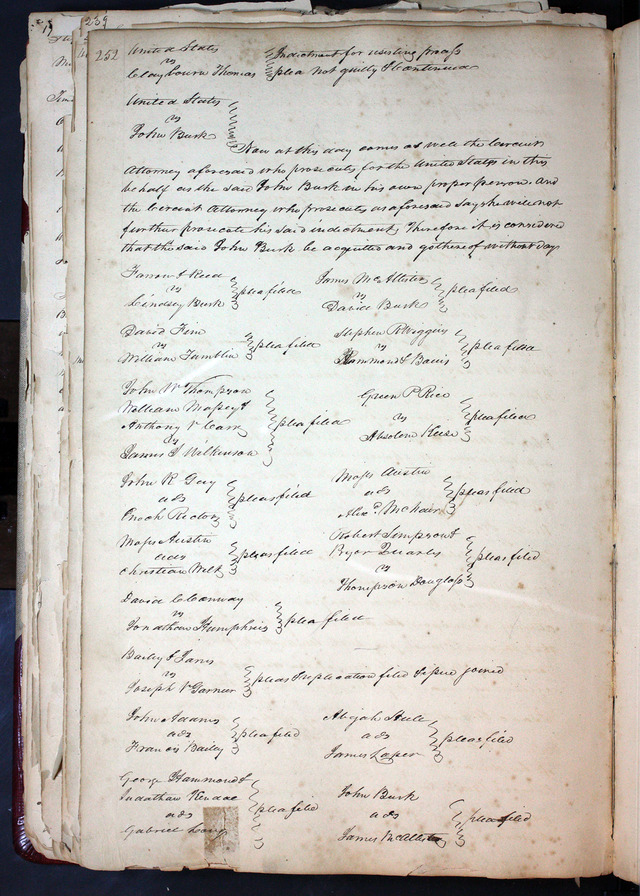 259
252 United States
vs
Claybourn Thomas
Indictment for resisting process
plea not guilty & Continued
United States
vs
John Burk
Now at this day comes as well the Circuit
Attorney aforesaid who prosecutes for the United States in this
behalf as the said John Burk in his own proper person. And
the Circuit Attorney who prosecutes as aforesaid says he will not
further prosecute his said indictment, Therefore it is considered
that the said John Burk be acquitted and go thereof without day
Farrow & Reed
vs
Lindsey Burk
plea filed
James McAllister
vs
David Burk
plea filed
David Fine
vs
William Tamblin
plea filed
Stephen R Wiggins
vs
Hammond &
plea filed
John W Thompson
William Massey &
Anthony V Carr
vs
James S Wilkinson
plea filed
Green P Rice
vs
Absolom Keese
plea filed
John R Guy
ads
Enoch Rector
pleas filed
Moses Austin
ads
Alexr. McNair
pleas filed
Moses Austin
ads
Christian Wilt
pleas filed
Robert Simpson &
Pryor Quarles
vs
Thompson Douglass
plea filed
David C Conway
vs
Jonathan Humphries
plea filed
Bailey & Janis
vs
Joseph V Garnier
pleas & replication filed & issue joined
John Adams
ads
Francis Bailey
plea filed
Abijah Hull
ads
James Loper
pleas filed
George Hammond &
Judathan Kendal
ads
Gabriel Long
plea filed
John Burk
ads
James McAllister
plea filed